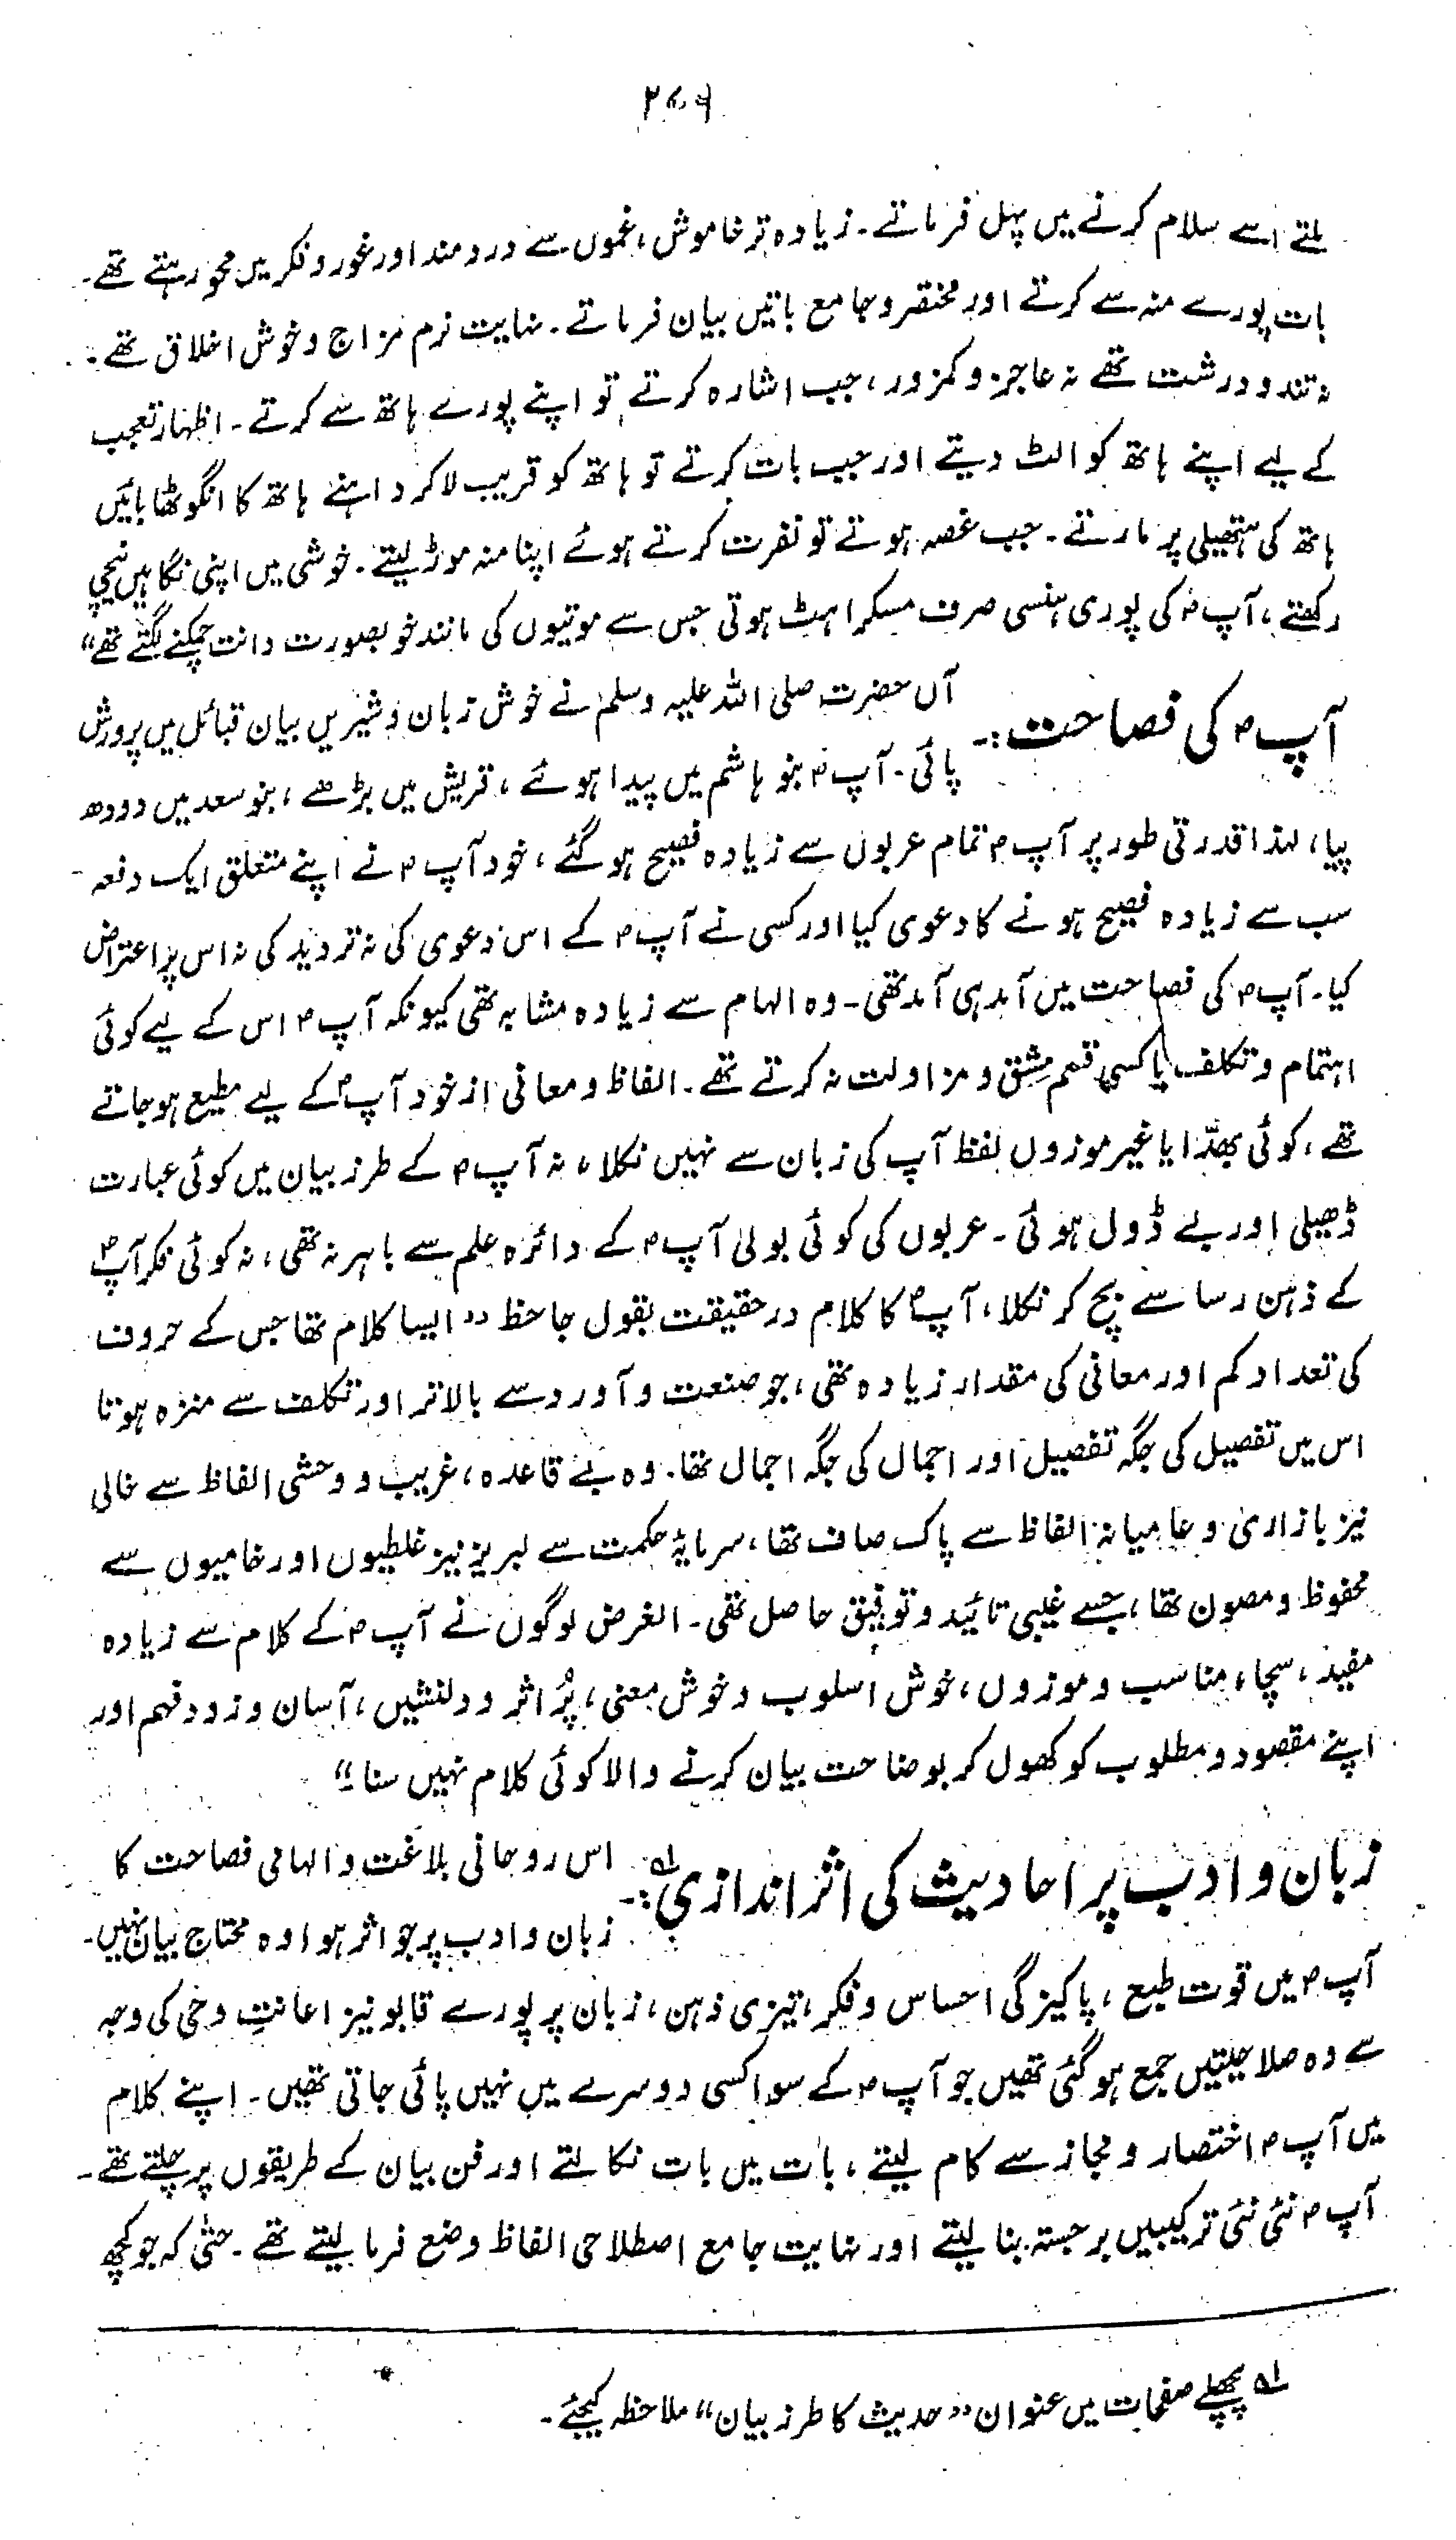 ۲۷۹
ملتے اسے سلام کرنے میں پہل فرماتے۔ زیادہ تر خاموش، غموں سے دردمند اور غور و فکر میں محو رہتے تھے۔
بات پورے منہ سے کرتے اور مختصر و جامع باتیں بیان فرماتے۔ نہایت نرم مزاج و خوش اخلاق تھے۔
نہ تند و درشت تھے نہ عاجز و کمزور، جب اشارہ کرتے تو اپنے پورے ہاتھ سے کرتے۔ اظہار تعجب
کے لیے اپنے ہاتھ کو الٹ دیتے اور جب بات کرتے تو ہاتھ کو قریب لا کر داہنے ہاتھ کا انگوٹھا بائیں
ہاتھ کی ہتھیلی پر مارتے۔ جب غصہ ہوتے تو نفرت کرتے ہوئے اپنا منہ موڑ لیتے۔ خوشی میں اپنی نگاہیں نیچی
رکھتے، آپ ؐ کی پوری ہنسی صرف مسکراہٹ ہوتی جس سے موتیوں کی مانند خوبصورت دانت چمکنے لگتے تھے“
آپ ؐ کی فصاحت:۔ آں حضرت صلی اللہ علیہ وسلم نے خوش زبان و شیریں بیان قبائل میں پرورش
پائی۔ آپ ؐ بنو ہاشم میں پیدا ہوئے، قریش میں بڑھے، بنو سعد میں دودھ
پیا، لہٰذا قدرتی طور پر آپ ؐ تمام عربوں سے زیادہ فصیح ہو گئے، خود آپ ؐ نے اپنے متعلق ایک دفعہ
سب سے زیادہ فصیح ہونے کا دعوی کیا اور کسی نے آپ ؐ کے اس دعوی کی نہ تردید کی نہ اس پر اعتراض
کیا۔ آپ ؐ کی فصاحت میں آمد ہی آمد تھی۔ وہ الہام سے زیادہ مشابہ تھی کیونکہ آپ ؐ اس کے لیے کوئی
اہتمام و تکلف یا کسی قسم مشق و مزاولت نہ کرتے تھے۔ الفاظ و معانی از خود آپ ؐ کے لیے مطیع ہو جاتے
تھے، کوئی بھدّا یا غیر موزوں لفظ آپ کی زبان سے نہیں نکلا، نہ آپ ؐ کے طرز بیان میں کوئی عبارت
ڈھیلی اور بے ڈول ہوئی۔ عربوں کی کوئی بولی آپ ؐ کے دائرہ علم سے باہر نہ تھی، نہ کوئی فکر آپ ؐ
کے ذہن رسا سے بچ کر نکلا، آپ ؐ کا کلام درحقیقت بقول جاحظ ”ایسا کلام تھا جس کے حروف
کی تعداد کم اور معانی کی مقدار زیادہ تھی، جو صنعت و آورد سے بالاتر اور تکلف سے منزہ ہوتا
اس میں تفصیل کی جگہ تفصیل اور اجمال کی جگہ اجمال تھا۔ وہ بے قاعدہ، غریب و وحشی الفاظ سے خالی
نیز بازاری و عامیانہ الفاظ سے پاک صاف تھا، سرمایۂ حکمت سے لبریز نیز غلطیوں اور خامیوں سے
محفوظ و مصون تھا، جسے غیبی تائید و توفیق حاصل تھی۔ الغرض لوگوں نے آپ ؐ کے کلام سے زیادہ
مفید، سچا، مناسب و موزوں، خوش اسلوب و خوش معنی، پُر اثر و دلنشیں، آسان و زود فہم اور
اپنے مقصود و مطلوب کو کھول کر بوضاحت بیان کرنے والا کوئی کلام نہیں سنا“
زبان و ادب پر احادیث کی اثر اندازی لہ:۔ اس روحانی بلاغت و الہامی فصاحت کا
زبان و ادب پر جو اثر ہوا وہ محتاج بیان نہیں۔
آپ ؐ میں قوت طبع، پاکیزگی احساس و فکر، تیزی ذہن، زبان پر پورے قابو نیز اعانتِ وحی کی وجہ
سے وہ صلاحیتیں جمع ہو گئی تھیں جو آپ ؐ کے سوا کسی دوسرے میں نہیں پائی جاتی تھیں۔ اپنے کلام
میں آپ ؐ اختصار و مجاز سے کام لیتے، بات میں بات نکالتے اور فن بیان کے طریقوں پر چلتے تھے۔
آپ ؐ نئی نئی ترکیبیں برجستہ بنا لیتے اور نہایت جامع اصطلاحی الفاظ وضع فرما لیتے تھے۔ حتیٰ کہ جو کچھ
لہ پچھلے صفحات میں عنوان ”حدیث کا طرز بیان“ ملاحظہ کیجئے۔